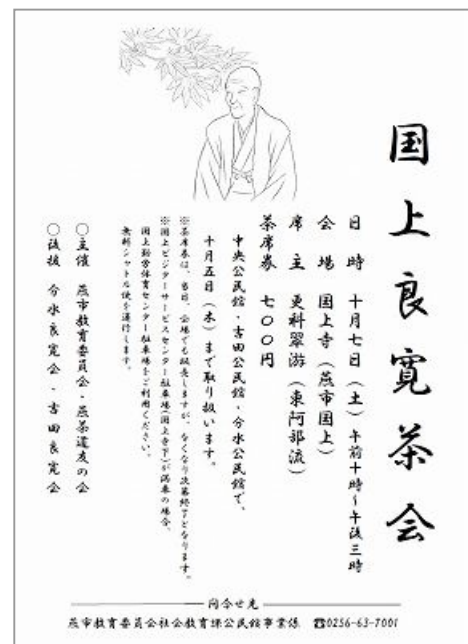 国上良寛茶会
日時 十月七日（土）午前十時〜午後三時
会場 国上寺（燕市国上）
席主 更科翠游（東阿部流）
茶席券 七〇〇円
中央公民館・吉田公民館・分水公民館で、
十月五日（木）まで取り扱います。
※茶席券は、当日、会場でも販売しますが、なくなり次第終了となります。
※国上ビジターサービスセンター駐車場(国上寺下)が満車の場合、
国上勤労体育センター駐車場をご利用ください。
無料シャトル便を運行します。
〇主催 燕市教育委員会・燕茶道友の会
〇後援 分水良寛会・吉田良寛会
問合せ先
燕市教育委員会社会教育課公民館事業係 ☎0256-63-7001